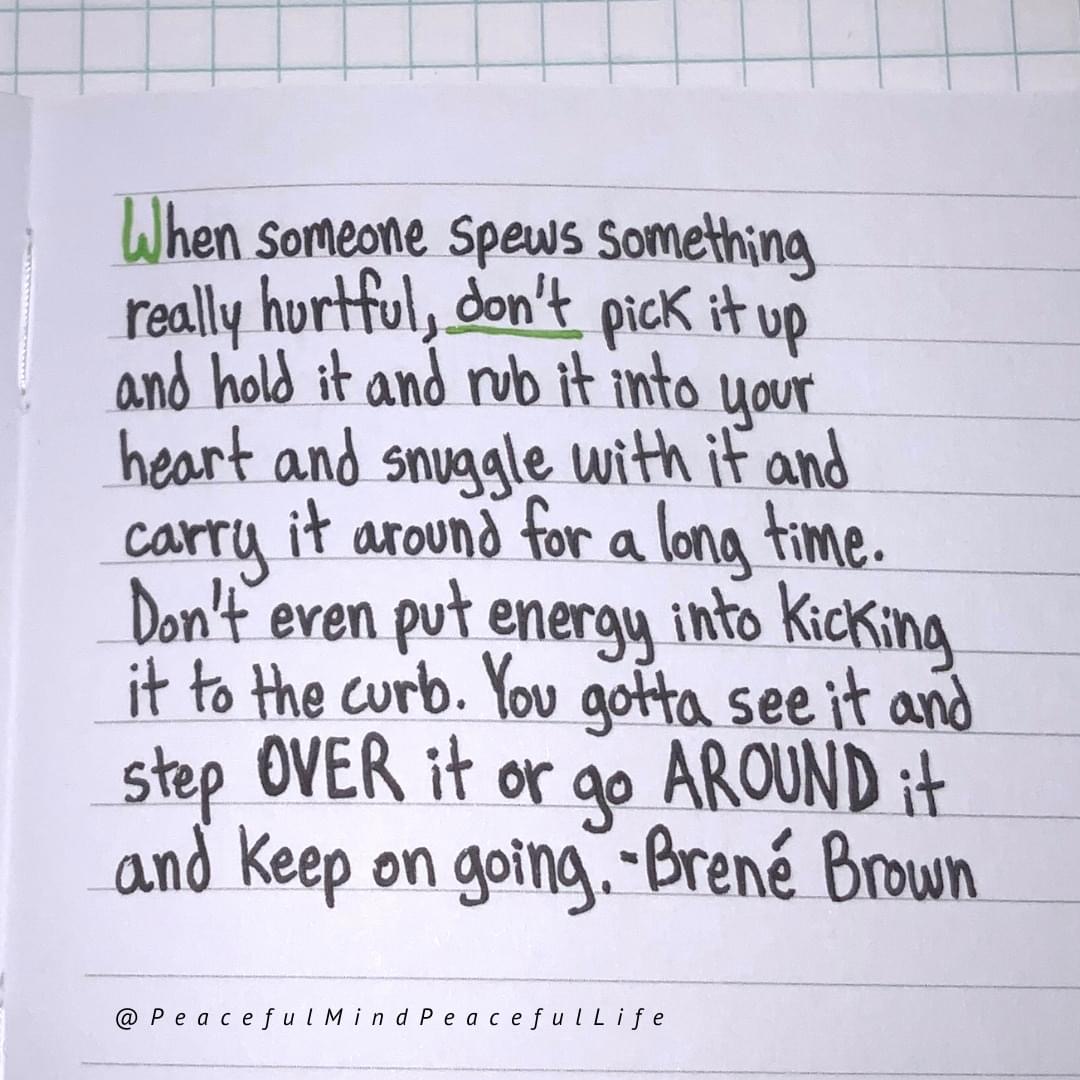 When someone spews something
really hurtful, don't pick it up
and hold it and rub it into your
heart and snuggle with it and
carry it around for a long time.
Don't even put energy into kicking
it to the curb. You gotta see it and
step OVER it or go AROUND it
and keep on going. -Brené Brown
@PeacefulMindPeacefulLife